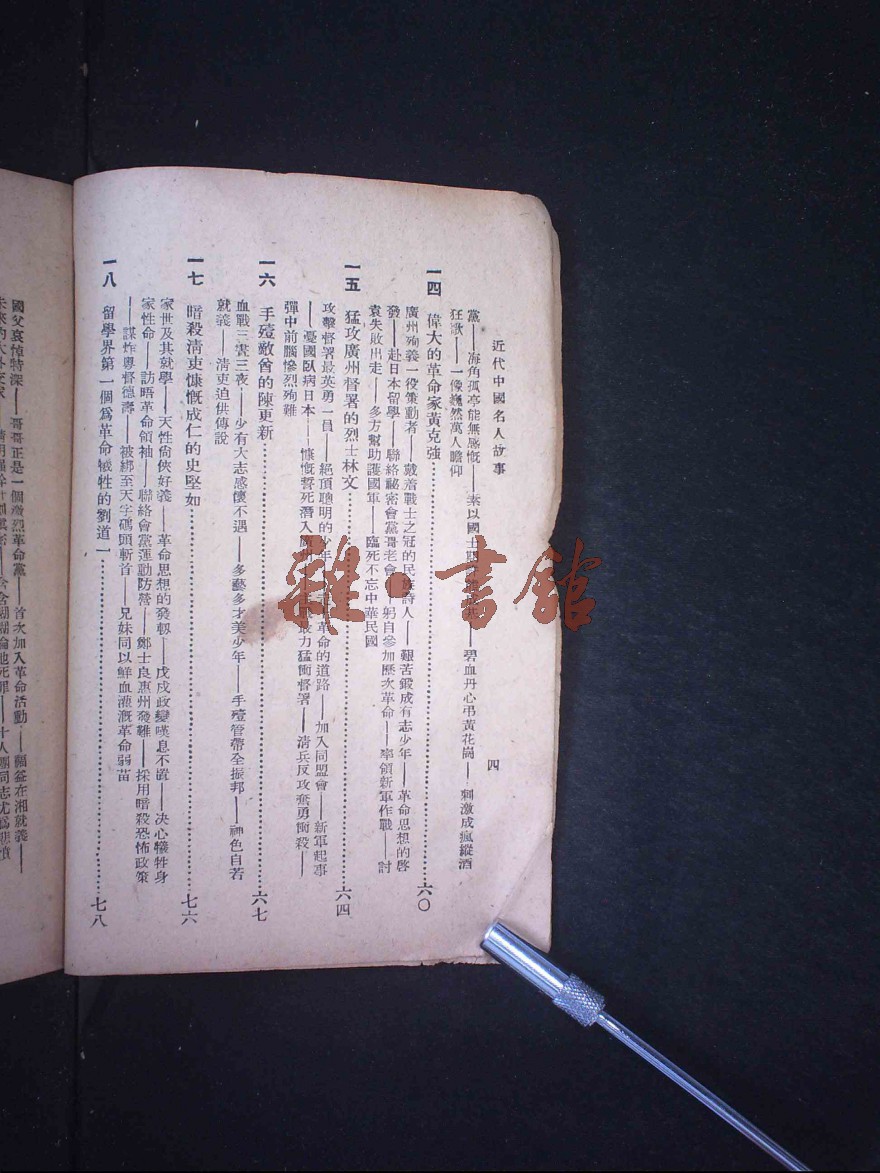 近代中國名人故事
四
黨——海角孤亭能無感慨——素以國士——碧血丹心弔黃花崗——刺激成瘋縱酒
狂歌——一像巍然萬人瞻仰
一四 偉大的革命家黃克強……六〇
廣州殉義一役策動者——戴着戰士之冠的民族詩人——艱苦鍛成有志少年——革命思想的啓
發——赴日本留學——聯絡祕密會黨哥老會——躬自參加歷次革命——率領新軍作戰——討
袁失敗出走——多方幫助護國軍——臨死不忘中華民國
一五 猛攻廣州督署的烈士林文……六四
攻擊督署最英勇一員——絕頂聰明的少年——革命的道路——加入同盟會——新軍起事
——憂國臥病日本——慷慨誓死潛入廣州——最力猛衝督署——清兵反攻奮勇衝殺——
彈中前腦慘烈殉難
一六 手殪敵酋的陳更新……六七
血戰三晝三夜——少有大志感懷不遇——多藝多才美少年——手殪管帶全振邦——神色自若
就義——清吏迫供傳說
一七 暗殺清吏慷慨成仁的史堅如……七六
家世及其就學——天性尙俠好義——革命思想的發軔——戊戌政變嘆息不置——决心犧牲身
家性命——訪晤革命領袖——聯絡會黨運動防營——鄭士良惠州發難——採用暗殺恐怖政策
——謀炸粵督德壽——被綁至天字碼頭斬首——兄妹同以鮮血灌漑革命弱苗
一八 留學界第一個爲革命犧牲的劉道一……七八
國父哀悼特深——哥哥正是一個激烈革命黨——首次加入革命活動——在湘就義——
雜·書館